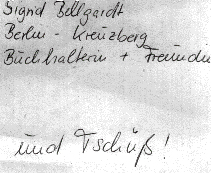 Sigrid Bellgardt
Berlin - Kreuzberg
Buchhalterin + Freundin
und Tschüß!